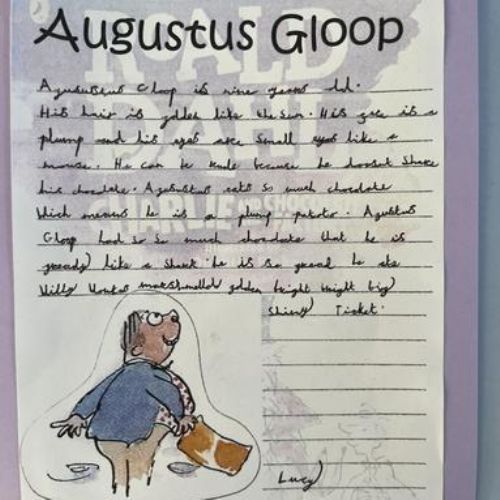 Augustus Gloop
ROALD
DAHL
CHARLIE AND THE CHOCOLATE
Agusustus Gloop is nine years old.
His hair is golden like the sun. His face is a
plump and his eyes are small eyes like a
mouse. He can be rude because he doesnt share
his chocolate. Agusustus eats so much chocolate
Which means he is a plump potato. Agustus
Gloop had so so much chocolate that he is
greedy like a shark he is so greed he ate
Willy Wonkas marshmallow golden bright big
shiny Ticket.
Lucy